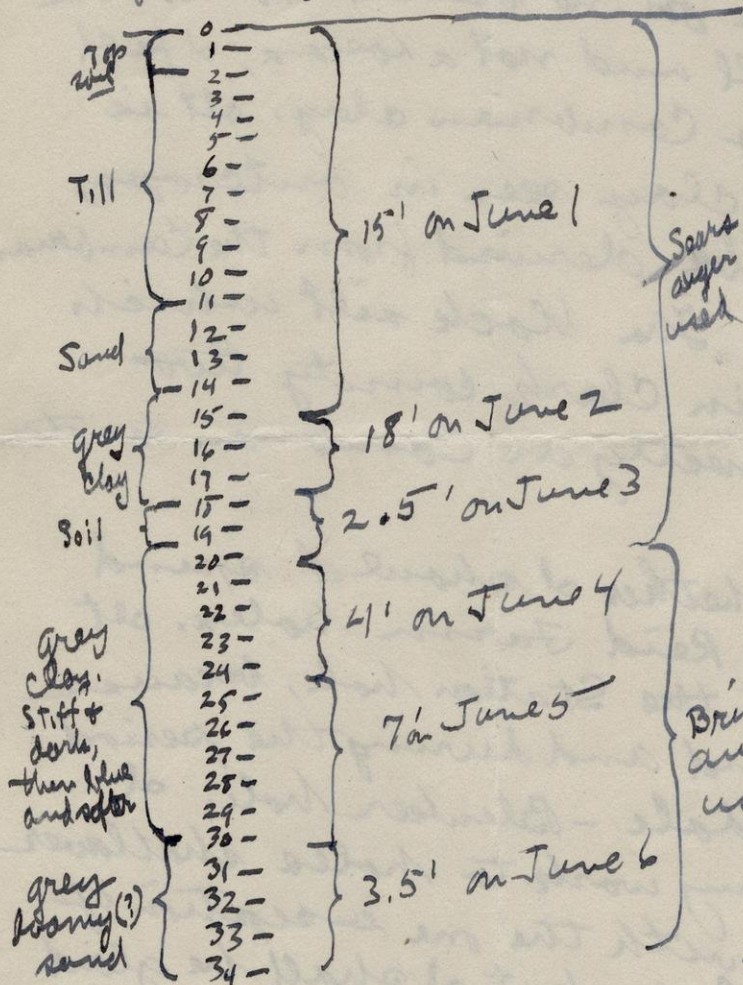 Top
soil
Till
Sand
grey
clay
Soil
grey
clay.
stiff &
dark,
then blue
and softer
grey
loamy(?)
sand
0 -
1 -
2 -
3 -
4 -
5 -
6 -
7 -
8 -
9 -
10 -
11 -
12 -
13 -
14 -
15 -
16 -
17 -
18 -
19 -
20 -
21 -
22 -
23 -
24 -
25 -
26 -
27 -
28 -
29 -
30 -
31 -
32 -
33 -
34 -
15' on June 1
18' on June 2
2.5' on June 3
4' on June 4
7' on June 5
3.5' on June 6
Sears
auger
used